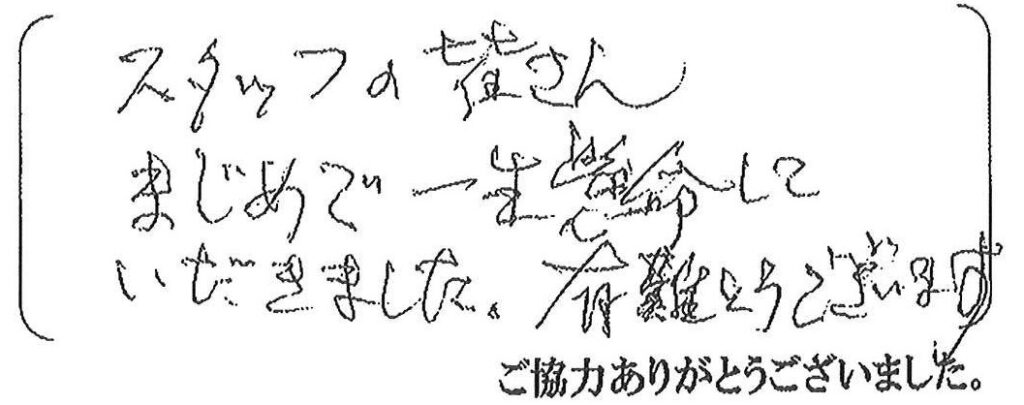 スタッフの皆さん
まじめで一生懸命して
いだきました、有難とうございます
ご協力ありがとうございました。